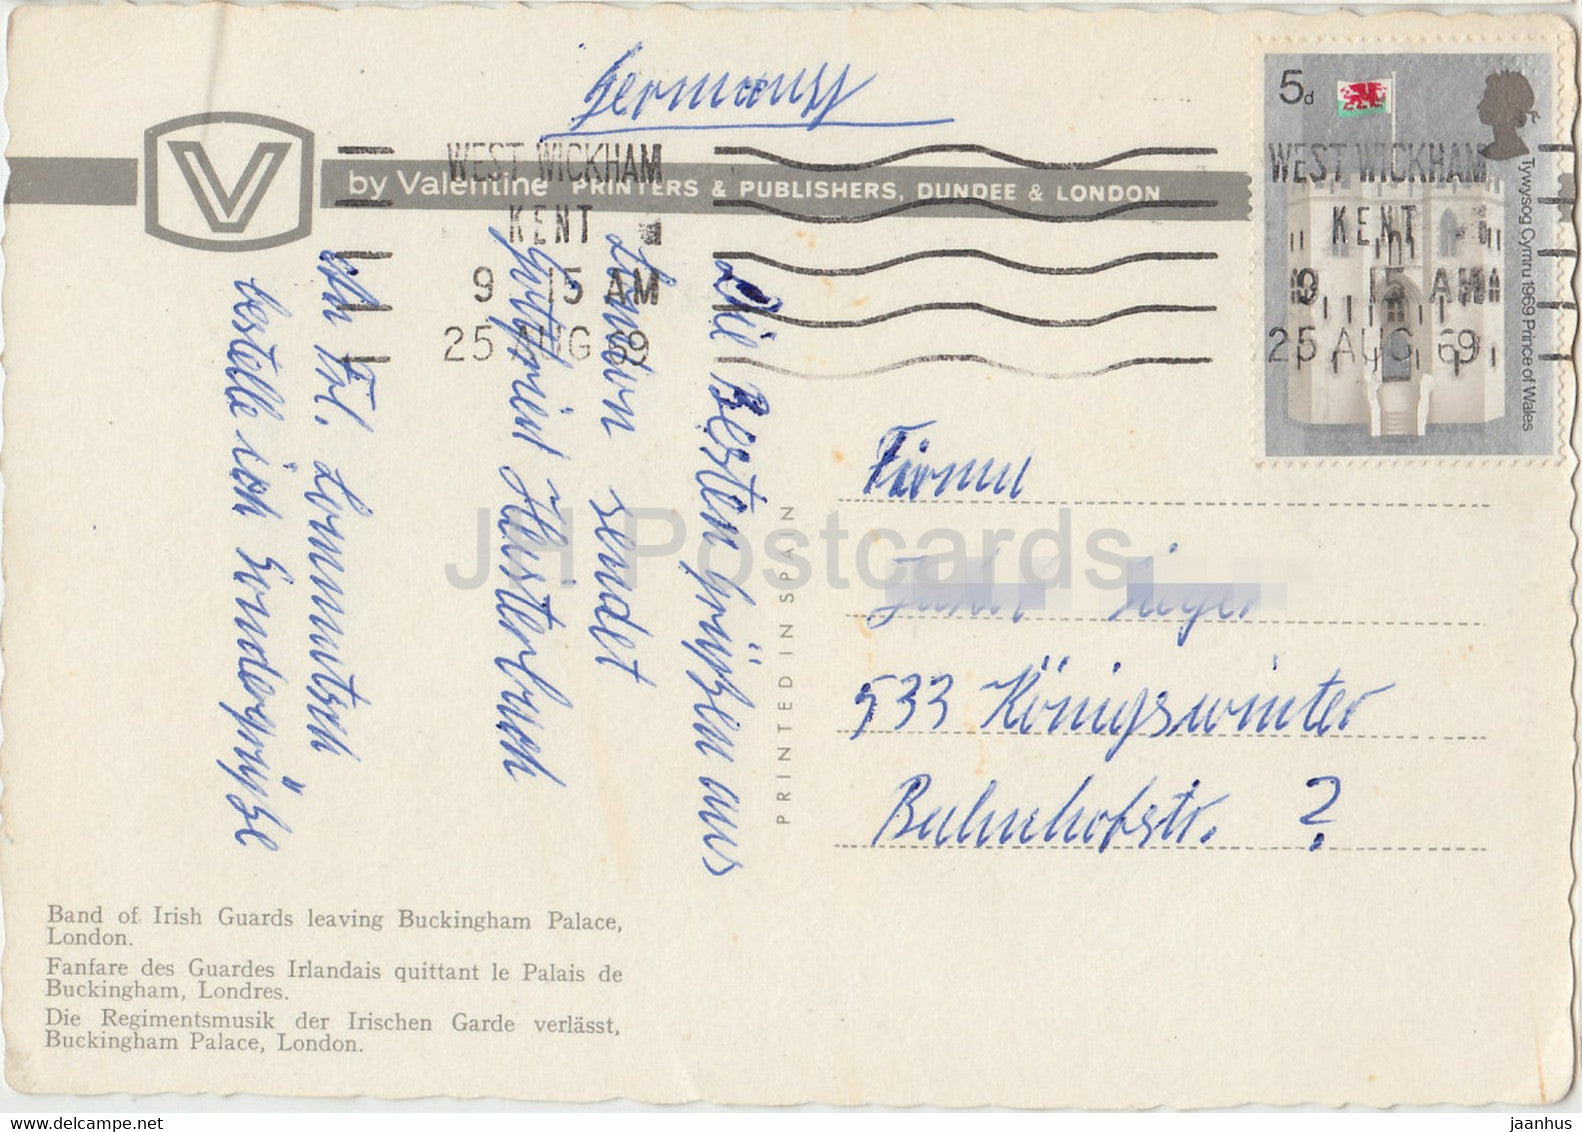 Germany
by Valentine PRINTERS & PUBLISHERS, DUNDEE & LONDON
WEST WICKHAM
KENT
9 15 AM
25 AUG 69
5d
Tywysog Cymru 1969 Prince of Wales
WEST WICKHAM
KENT
9 15 AM
25 AUG 69
Die Besten Grüßen aus
London sendet
Gottfried
An Frl.
bestelle ich Sondergrüße
PRINTED IN SPAIN
Firma
533 Königswinter
Bahnhofstr. ?
Band of Irish Guards leaving Buckingham Palace,
London.
Fanfare des Guardes Irlandais quittant le Palais de
Buckingham, Londres.
Die Regimentsmusik der Irischen Garde verlässt,
Buckingham Palace, London.
JH Postcards
jaanhus